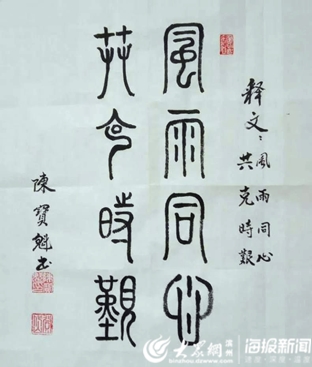 释文：風雨同心
共克時艱
風雨同心
共克時艱
陳寶魁书
大众网 滨州
海报新闻